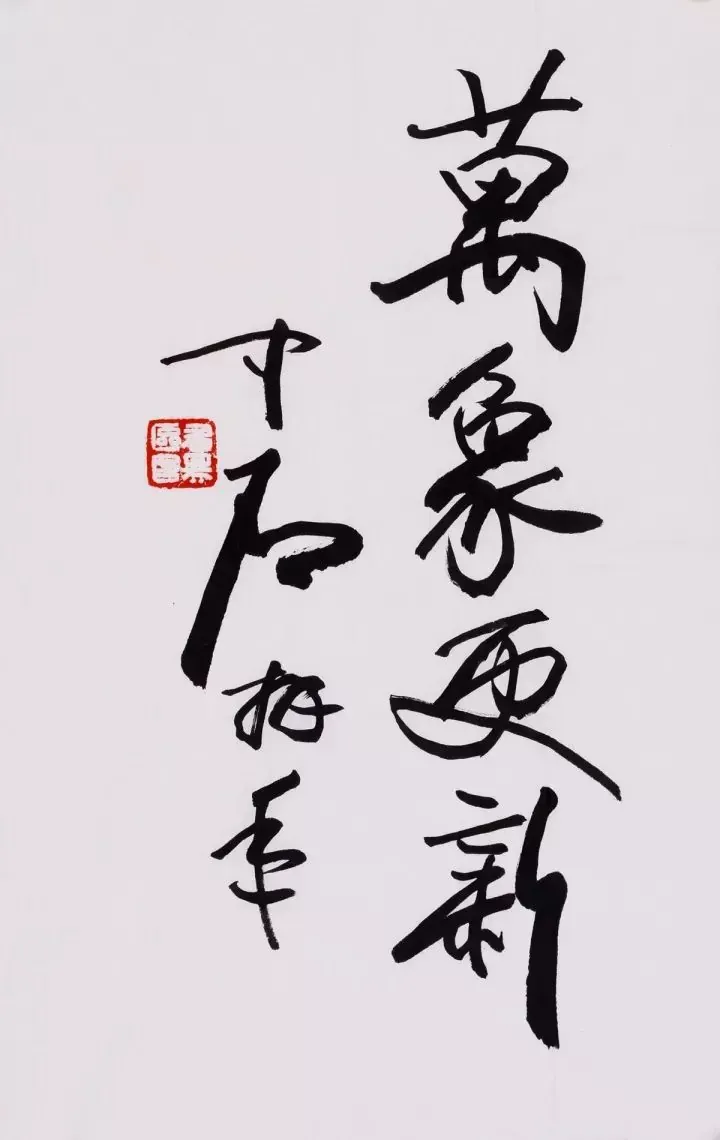 萬象更新
中石拜年